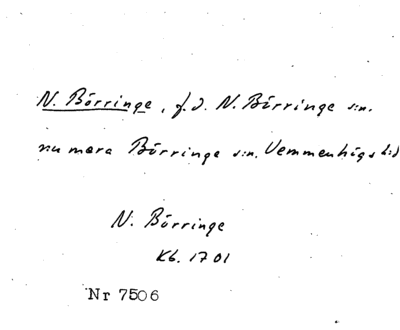 N. Börringe, f.d. N. Börringe s:n.
numera Börringe s:n. Vemmenhögs h:d
N. Börringe
Kb. 1701
Nr 7506